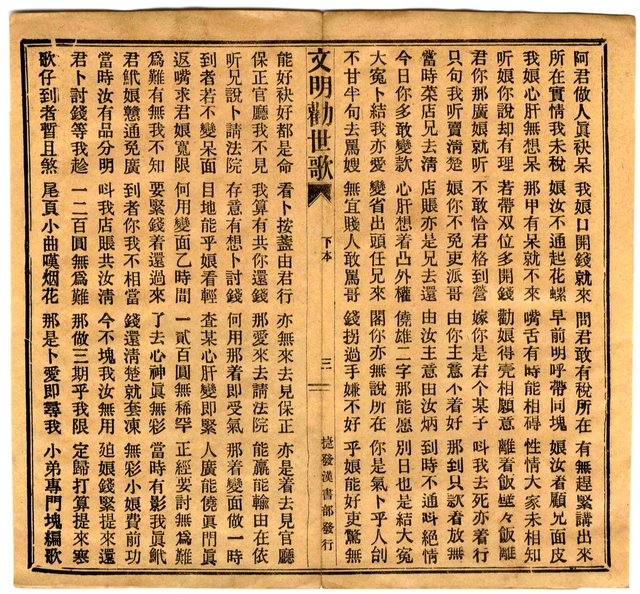 阿君做人眞袂呆 我娘口開錢就來 問君敢有稅所在 有無趕緊講出來
所在實情我未稅 娘汝不通起花螺 早前明呼帶同塊 娘汝看顧兄面皮
我娘心肝無想呆 那甲有呆就不來 嘴舌有時能相碍 性情大家未相知
听娘你說却有理 若帶双位多開錢 勸娘得壳相願意 離着飯壁々飯離
君你那廣娘就听 不敢恰君格到營 嫁你是君个某子 叫我去死亦着行
只句我听賣清楚 娘你不免更派哥 由你主意小着好 那到只款看放無
當時菜店兄去清 店賬亦是兄去還 由汝主意由汝炳 到時不通叫絕情
今日你多敢變款 心肝想着凸外權 僥雄二字那能愿 別日也是結大冤
大冤卜結我亦愛 變省出頭任兄來 閣你亦無說所在 你是氣卜乎人刣
不甘半句去罵嫂 無宜賤人敢罵哥 錢拐過手嫌不好 乎娘能好更驚無
文明勸世歌 下本 三 捷發漢書部發行
能好袂好都是命 看卜按盞由君行 亦無來去見保正 亦是着去見官廳
保正官廳我不見 我算有共你還錢 那愛來去請法院 能贏能輸由在依
听兄說卜請法院 存意有想卜討錢 何用那着即受氣 那着變面做一時
到者若不變呆面 目地能乎娘看輕 查某心肝變即緊 人廣能僥眞門眞
返嘴求君娘寬限 何用變面乙時間 一貳百圓無稀罕 正經要討無爲難
爲難有無我不知 要緊錢着還過來 了去心神眞無彩 當時有影我眞眤
君眤娘戇通免廣 到者你我不相當 錢還清楚就套凍 無彩小娘費前功
當時汝有品分明 叫我店賬共汝清 今不塊我汝無用 廹娘錢緊提來還
君卜討錢等我趁 一二百圓無爲難 那做三期乎我限 定歸打算提來塞
歌仔到者暫且煞 尾頁小曲嘆烟花 那是卜愛即尋我 小弟專門塊編歌